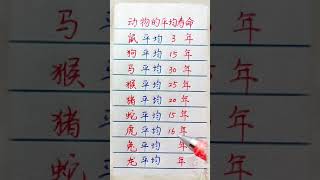 动物的平均寿命
鼠平均 3 年
狗平均 15 年
马平均 30 年
猴平均 25 年
猪平均 20 年
蛇平均 15 年
虎平均 15 年
兔平均 年
龙平均 年